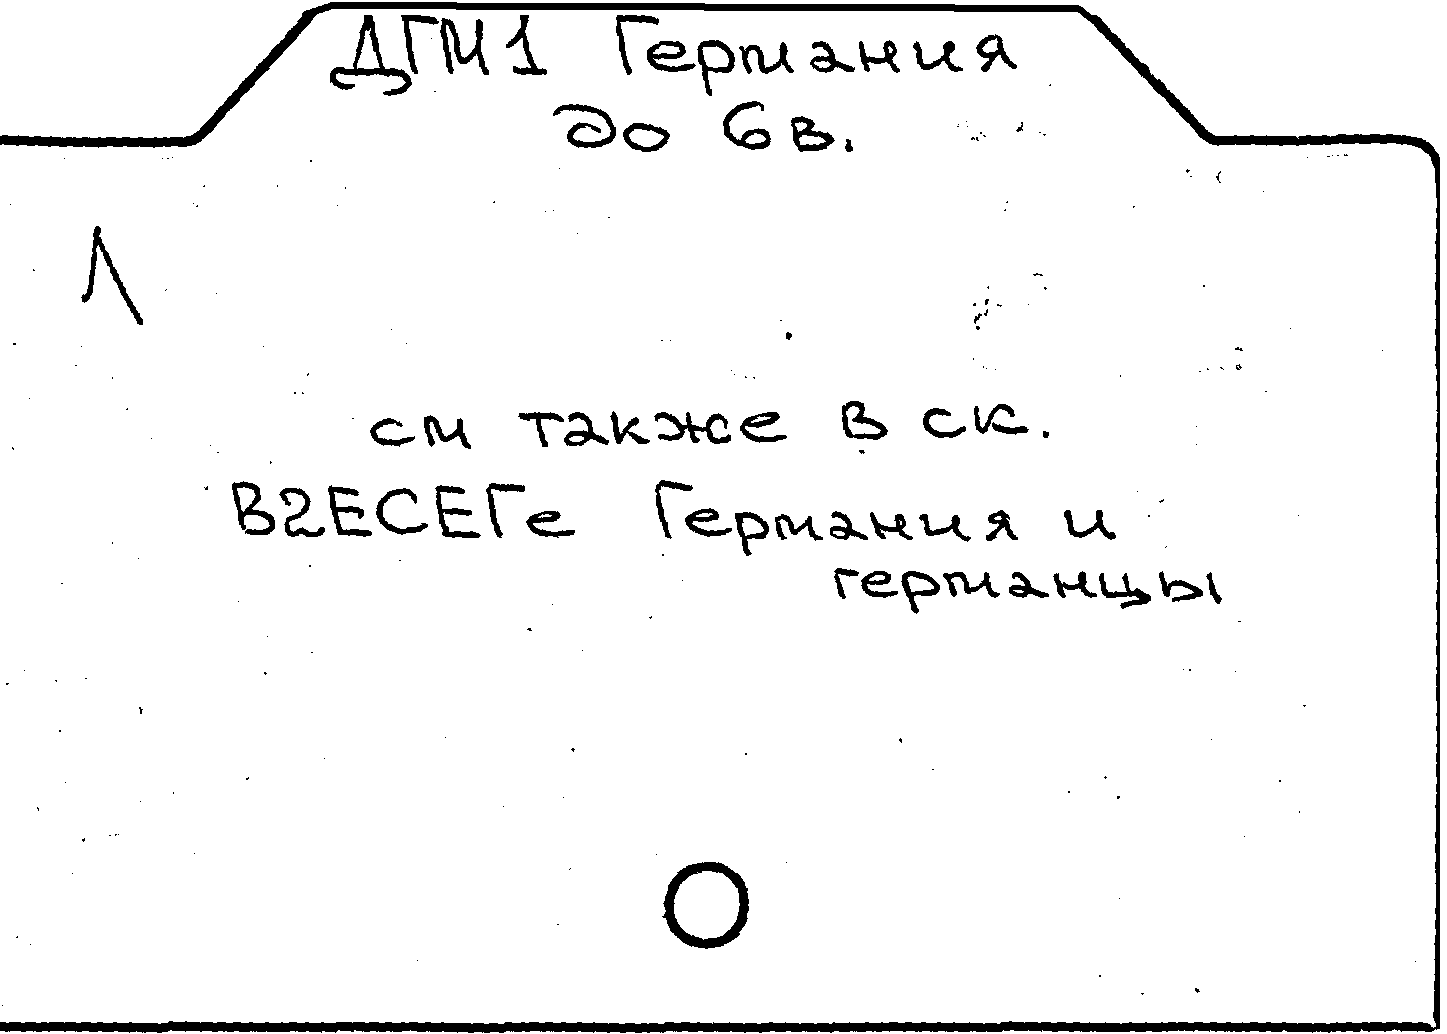 ДГМ1 Германия
до 6 в.
Л
см также в ск.
В2ЕСЕГе Германия и
германцы